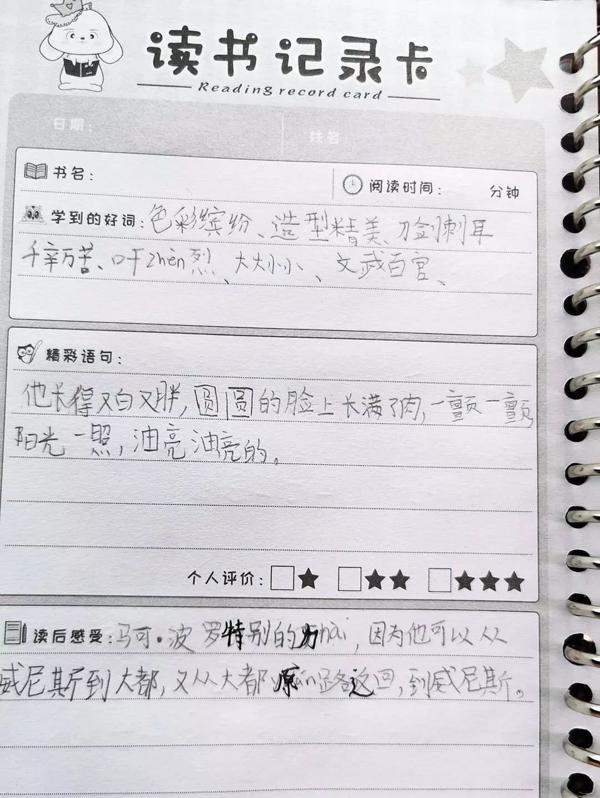 读书记录卡
Reading record card
日期:
姓名:
书名:
阅读时间: 分钟
学到的好词: 色彩缤纷、造型精美、刀剑刺耳
千辛万苦、吓zhèn烈、大大小小、文武百官、
精彩语句:
他长得又白又胖,圆圆的脸上长满了肉,一颤一颤
阳光一照,油亮油亮的。
个人评价: □★ □★★ □★★★
读后感受: 马可·波罗特别的厉hai,因为他可以从
威尼斯到大都,又从大都原路返回,到威尼斯。